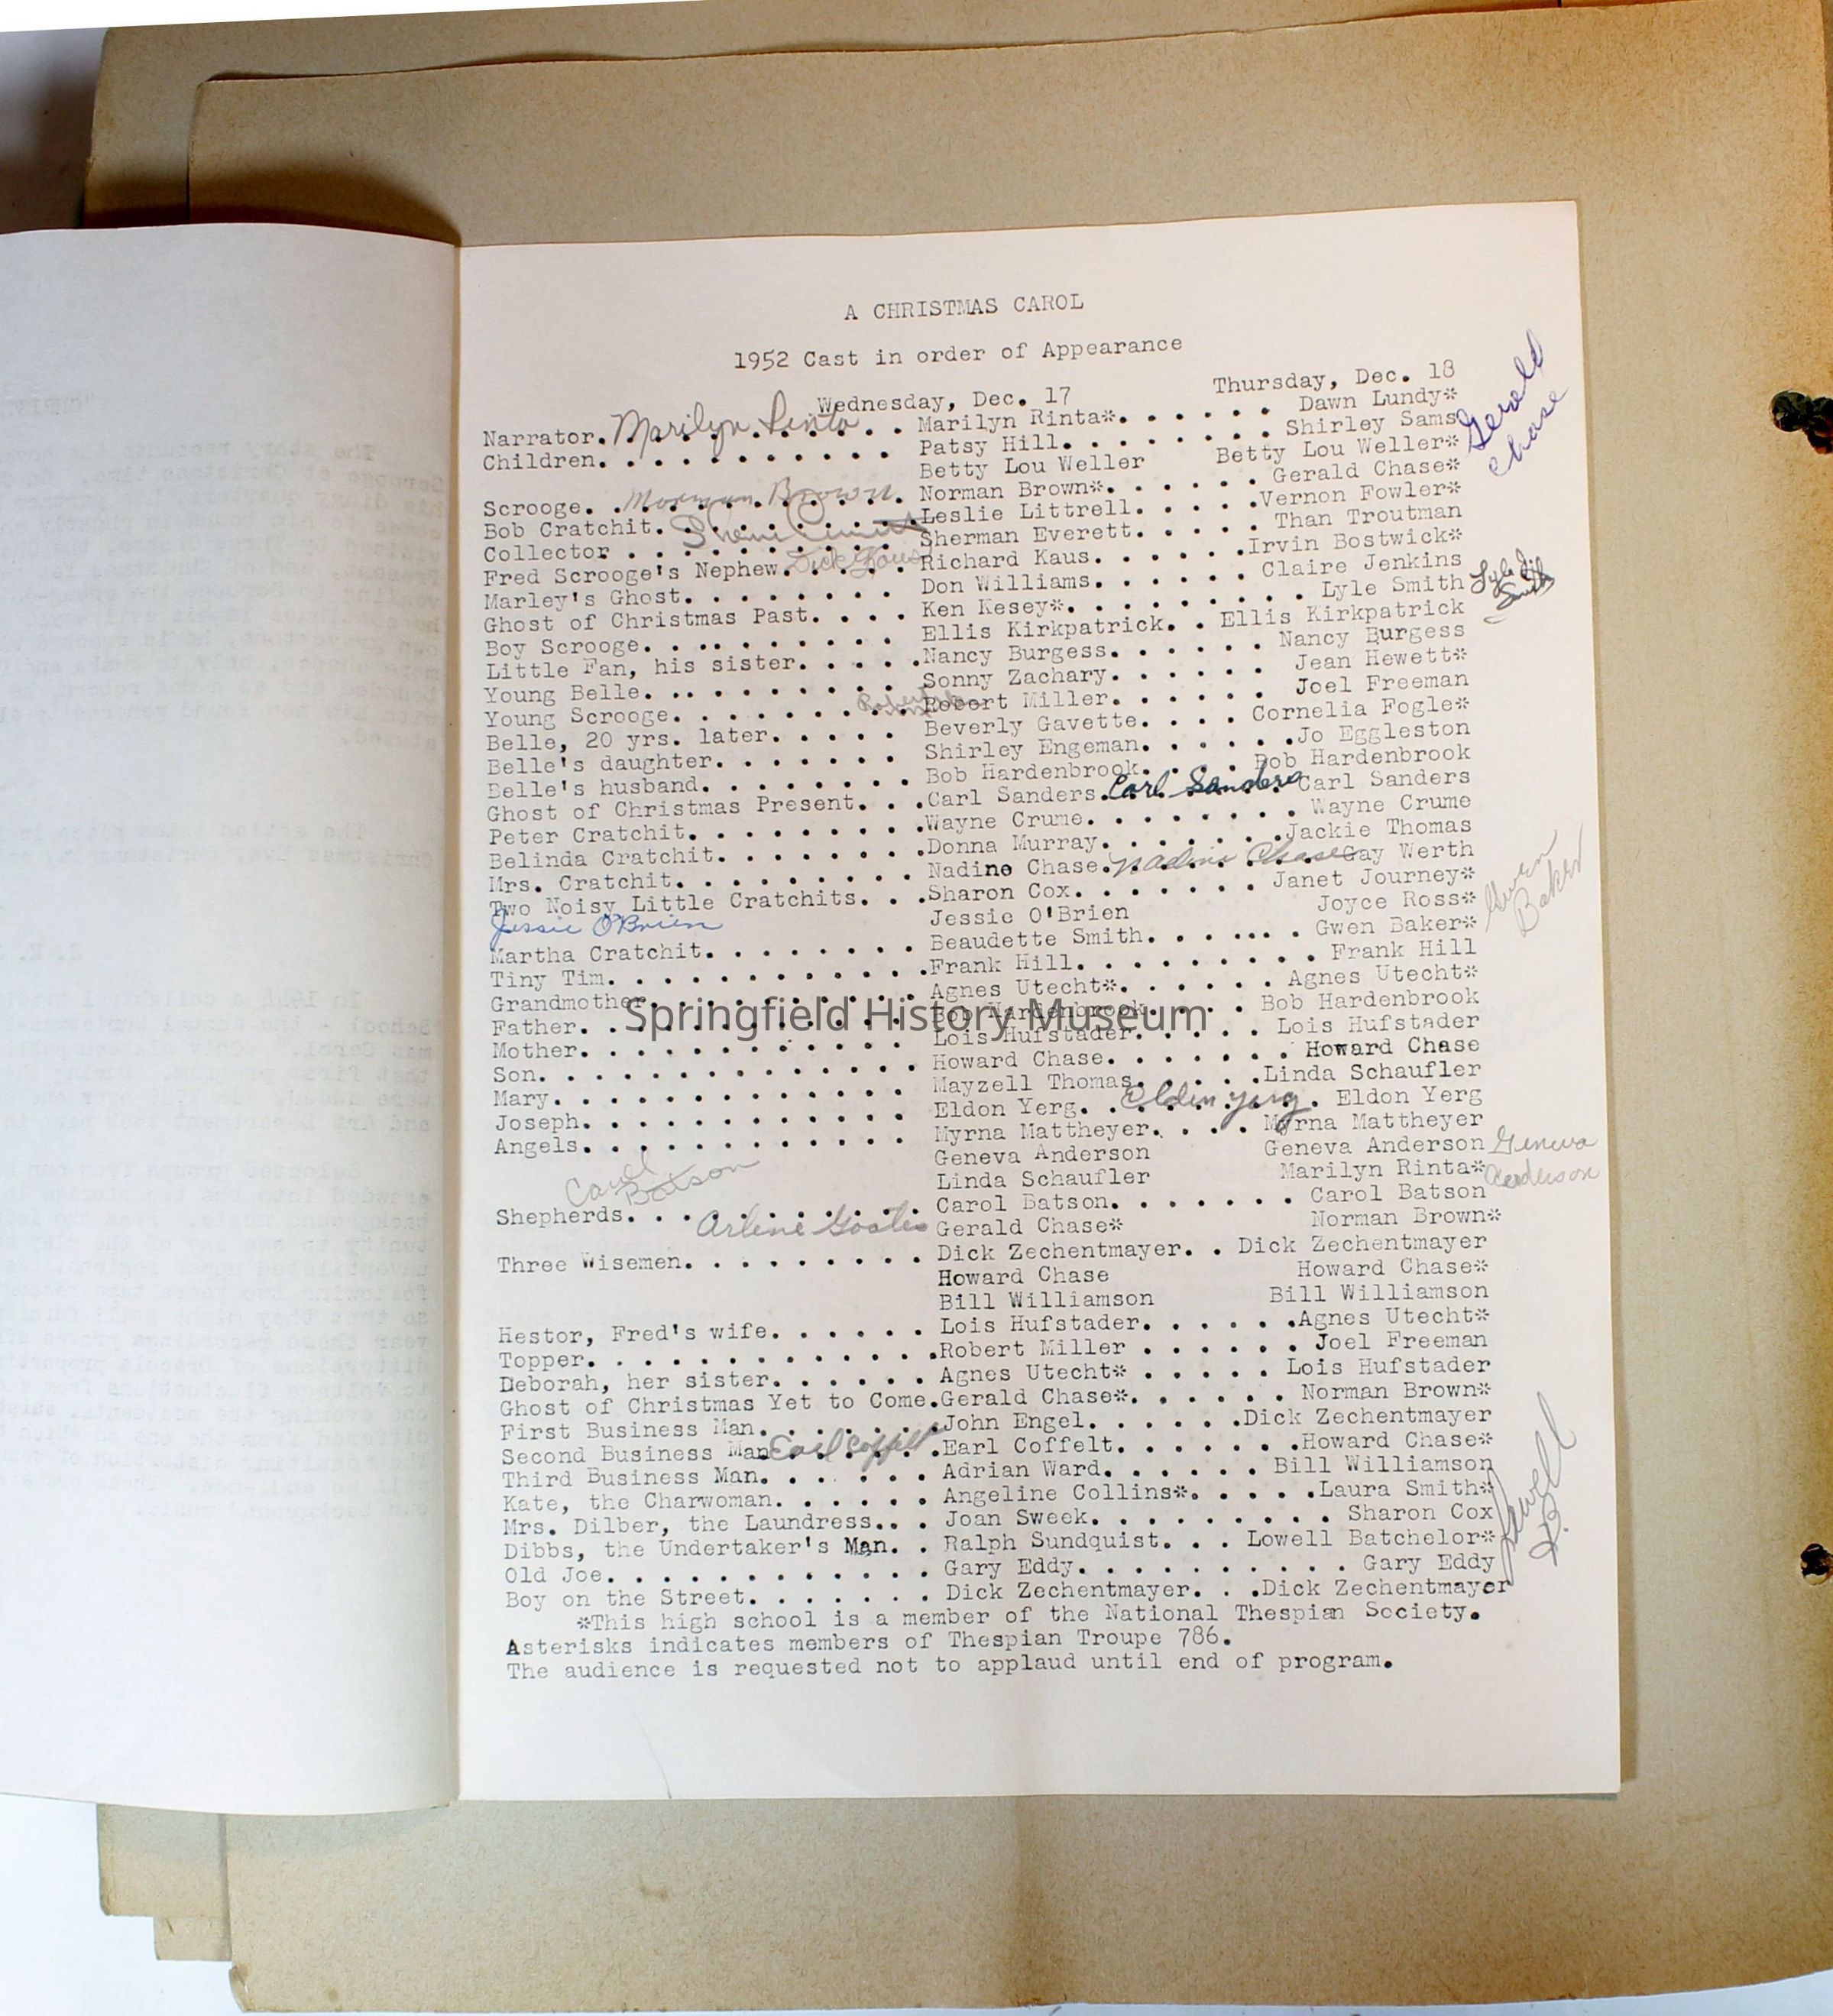 A CHRISTMAS CAROL
1952 Cast in order of Appearance
Wednesday, Dec. 17 Thursday, Dec. 18
Narrator. Marilyn Rinta . . . Marilyn Rinta*. . . . . . . Dawn Lundy*
Children. . . . . . . . . . . Patsy Hill. . . . . . . . . Shirley Sams
Betty Lou Weller Betty Lou Weller*
Gerald Chase
Scrooge. . Norman Brown . Norman Brown*. . . . . . . Gerald Chase*
Bob Cratchit. . . . . . . . . .Leslie Littrell. . . . . .Vernon Fowler*
Collector . . . . . . . . . . Sherman Everett. . . . . Than Troutman
Fred Scrooge's Nephew. Dick Kaus . Richard Kaus. . . . . . .Irvin Bostwick*
Marley's Ghost. . . . . . . . Don Williams. . . . . . . Claire Jenkins
Ghost of Christmas Past. . . . Ken Kesey*. . . . . . . . . . Lyle Smith Lyle Smith
Boy Scrooge. . . . . . . . . . Ellis Kirkpatrick. . Ellis Kirkpatrick
Little Fan, his sister. . . . . .Nancy Burgess. . . . . . . Nancy Burgess
Young Belle. . . . . . . . . . Sonny Zachary. . . . . . . Jean Hewett*
Young Scrooge. . . . . . . . . .Robert Miller. . . . . . . Joel Freeman
Belle, 20 yrs. later. . . . . Beverly Gavette. . . . Cornelia Fogle*
Belle's daughter. . . . . . . Shirley Engeman. . . . . . .Jo Eggleston
Belle's husband. . . . . . . . Bob Hardenbrook. . . . Bob Hardenbrook
Ghost of Christmas Present. . .Carl Sanders. Carl Sanders Carl Sanders
Peter Cratchit. . . . . . . . .Wayne Crume. . . . . . . . . Wayne Crume
Belinda Cratchit. . . . . . . .Donna Murray. . . . . . . .Jackie Thomas
Mrs. Cratchit. . . . . . . . . Nadine Chase. Nadine Chase Gay Werth
Two Noisy Little Cratchits. . .Sharon Cox. . . . . . . . Janet Journey*
Jessie O'Brien Jessie O'Brien Joyce Ross*
Martha Cratchit. . . . . . . . Beaudette Smith. . . . . . . Gwen Baker* Gwen Baker
Tiny Tim. . . . . . . . . . . .Frank Hill. . . . . . . . . Frank Hill
Grandmother. . . . . . . . . . Agnes Utecht*. . . . . . . Agnes Utecht*
Father. . . . . . . . . . . . Bob Hardenbrook. . . . . Bob Hardenbrook
Mother. . . . . . . . . . . . Lois Hufstader. . . . . . Lois Hufstader
Son. . . . . . . . . . . . . . Howard Chase. . . . . . . . Howard Chase
Mary. . . . . . . . . . . . . Mayzell Thomas. . . . . .Linda Schaufler
Joseph. . . . . . . . . . . . Eldon Yerg. . Eldon Yerg . Eldon Yerg
Angels. . . . . . . . . . . . Myrna Mattheyer. . . . . Myrna Mattheyer
Geneva Anderson Geneva Anderson Geneva Anderson
Linda Schaufler Marilyn Rinta*
Carol Batson
Shepherds. . . . . . . . . . . Carol Batson. . . . . . . . Carol Batson
Arlene Gerald Chase* Norman Brown*
Three Wisemen. . . . . . . . . Dick Zechentmayer. . Dick Zechentmayer
Howard Chase Howard Chase*
Bill Williamson Bill Williamson
Hestor, Fred's wife. . . . . . Lois Hufstader. . . . . . .Agnes Utecht*
Topper. . . . . . . . . . . . .Robert Miller . . . . . . Joel Freeman
Deborah, her sister. . . . . . Agnes Utecht* . . . . . Lois Hufstader
Ghost of Christmas Yet to Come.Gerald Chase*. . . . . . . Norman Brown*
First Business Man. . . . . . .John Engel. . . . . . .Dick Zechentmayer
Second Business Man Earl Coffelt .Earl Coffelt. . . . . . . .Howard Chase*
Third Business Man. . . . . . Adrian Ward. . . . . . Bill Williamson
Kate, the Charwoman. . . . . . Angeline Collins*. . . . . .Laura Smith*
Mrs. Dilber, the Laundress.. . Joan Sweek. . . . . . . . . . Sharon Cox
Dibbs, the Undertaker's Man. . Ralph Sundquist. . . Lowell Batchelor*
Lowell B.
Old Joe. . . . . . . . . . . . Gary Eddy. . . . . . . . . . . Gary Eddy
Boy on the Street. . . . . . . Dick Zechentmayer. . .Dick Zechentmayer
*This high school is a member of the National Thespian Society.
Asterisks indicates members of Thespian Troupe 786.
The audience is requested not to applaud until end of program.
Springfield History Museum